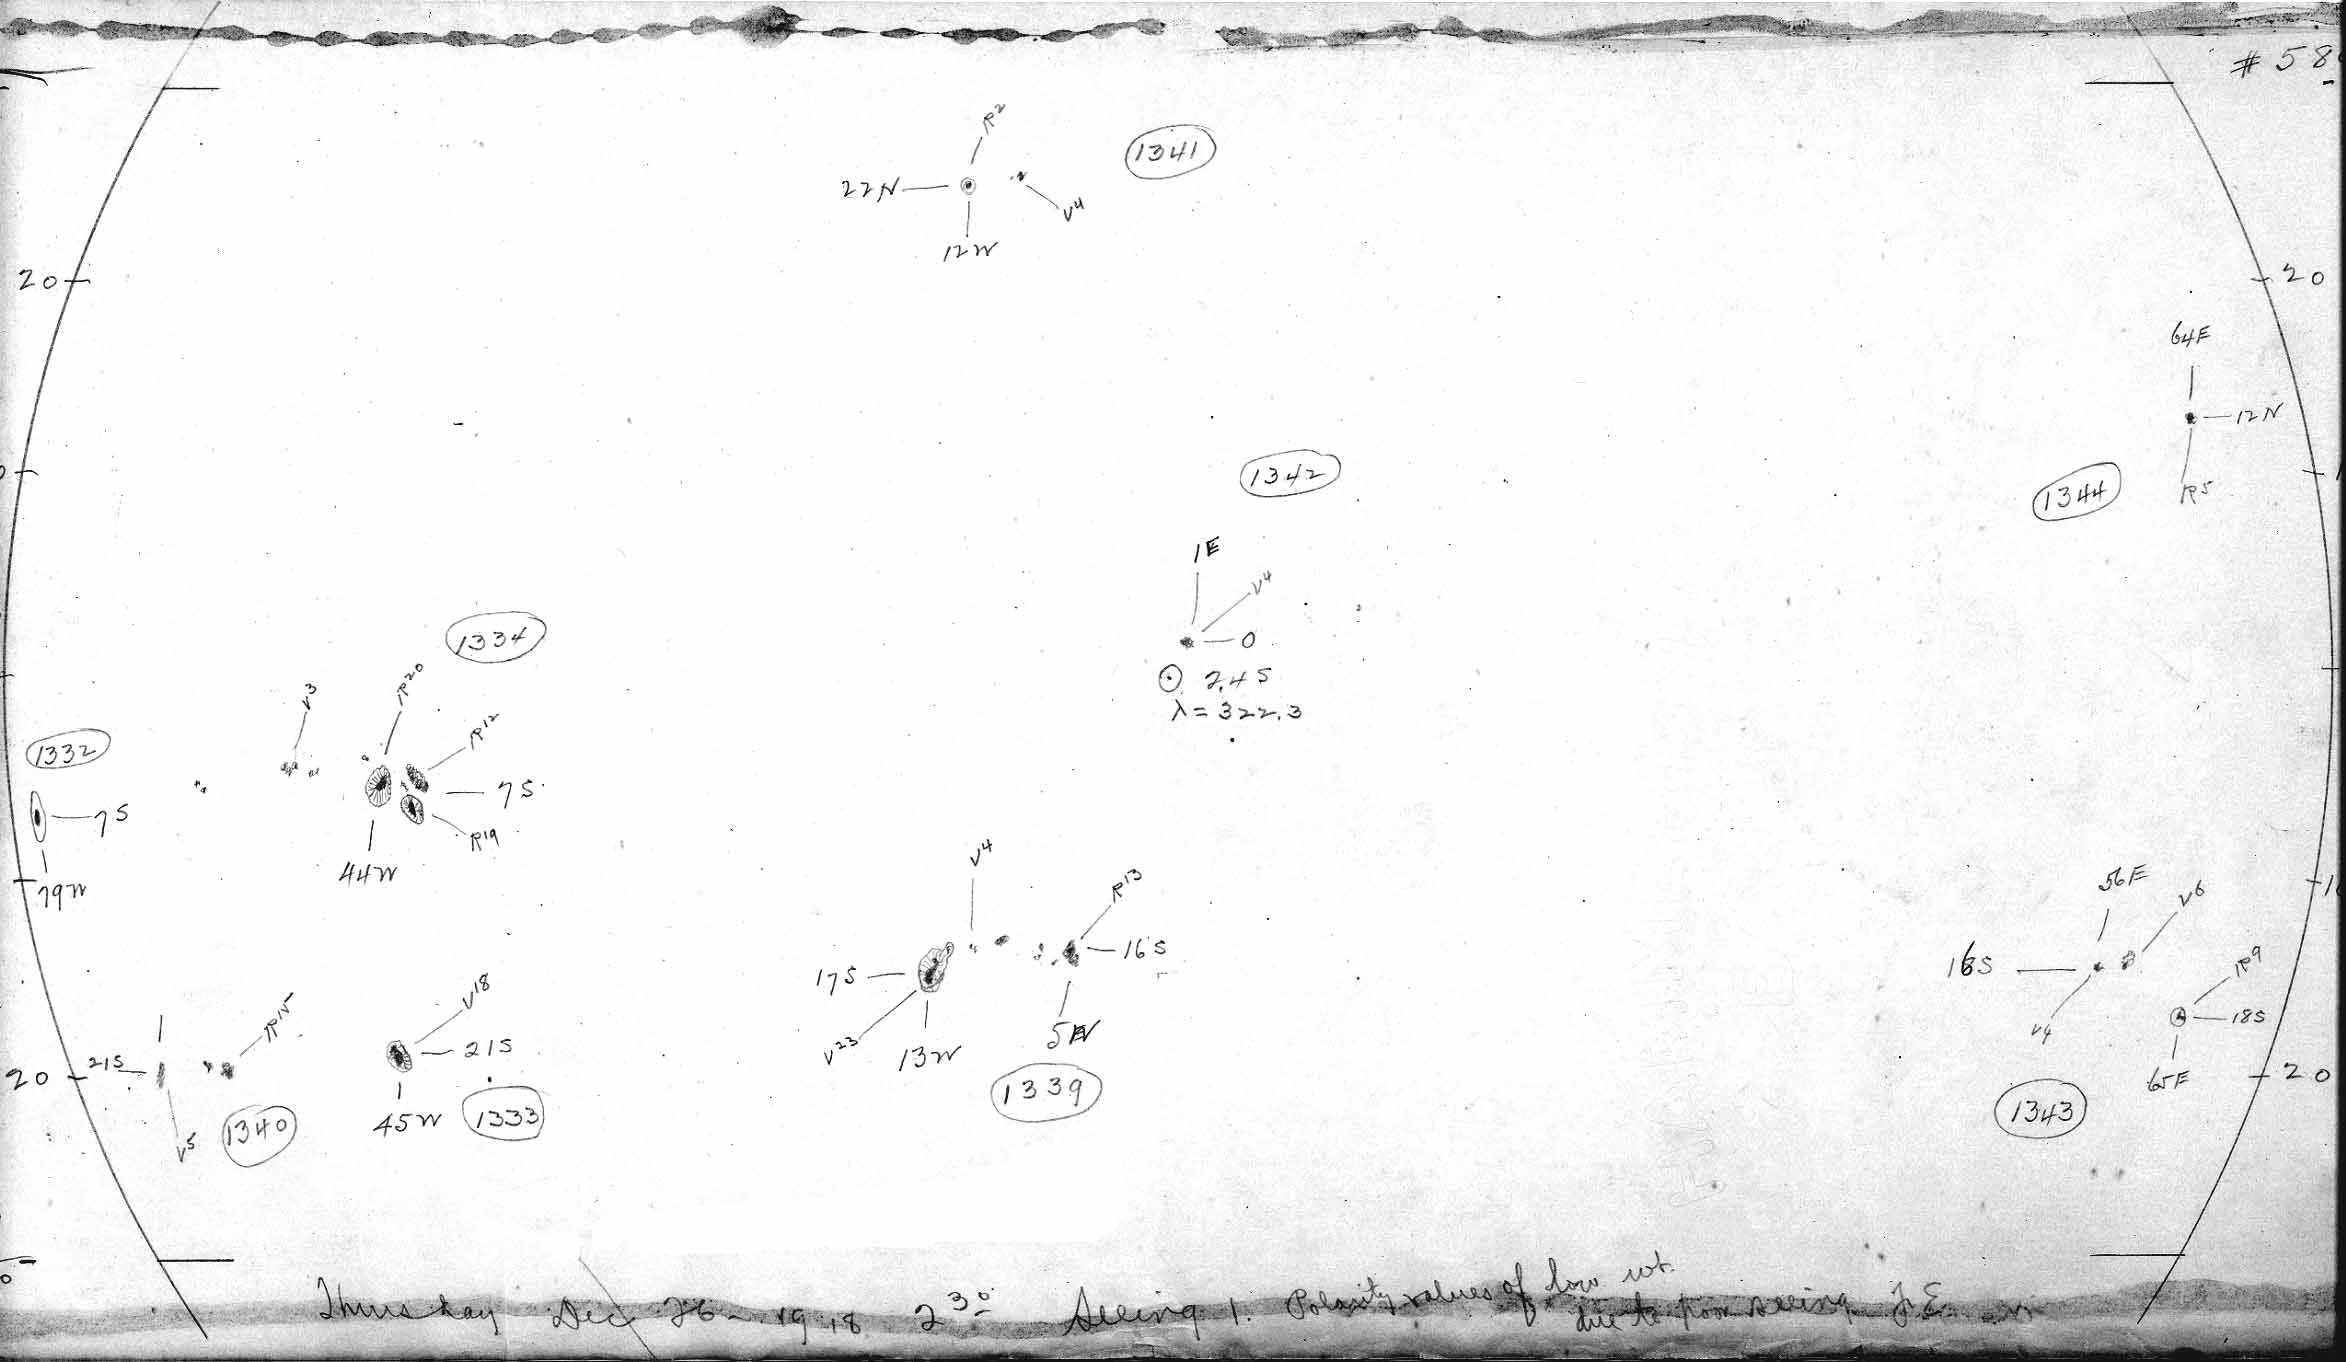 # 58
R2
1341
22N
V4
12W
20
20
64E
12N
1342
R5
1344
1E
V4
0
1334
2.4S
λ=322.3
R20
V3
R12
1332
7S
7S
R19
44W
79W
V4
R13
56E
V6
16S
17S
16S
R9
V18
V4
18S
R15
5W
21S
V23
13W
21S
20
65E
20
1339
1343
45W
1333
1340
V5
Thursday Dec 26 - 1918 2 30 Seeing 1. Polarity values of low wt.
due to poor seeing. F.E.